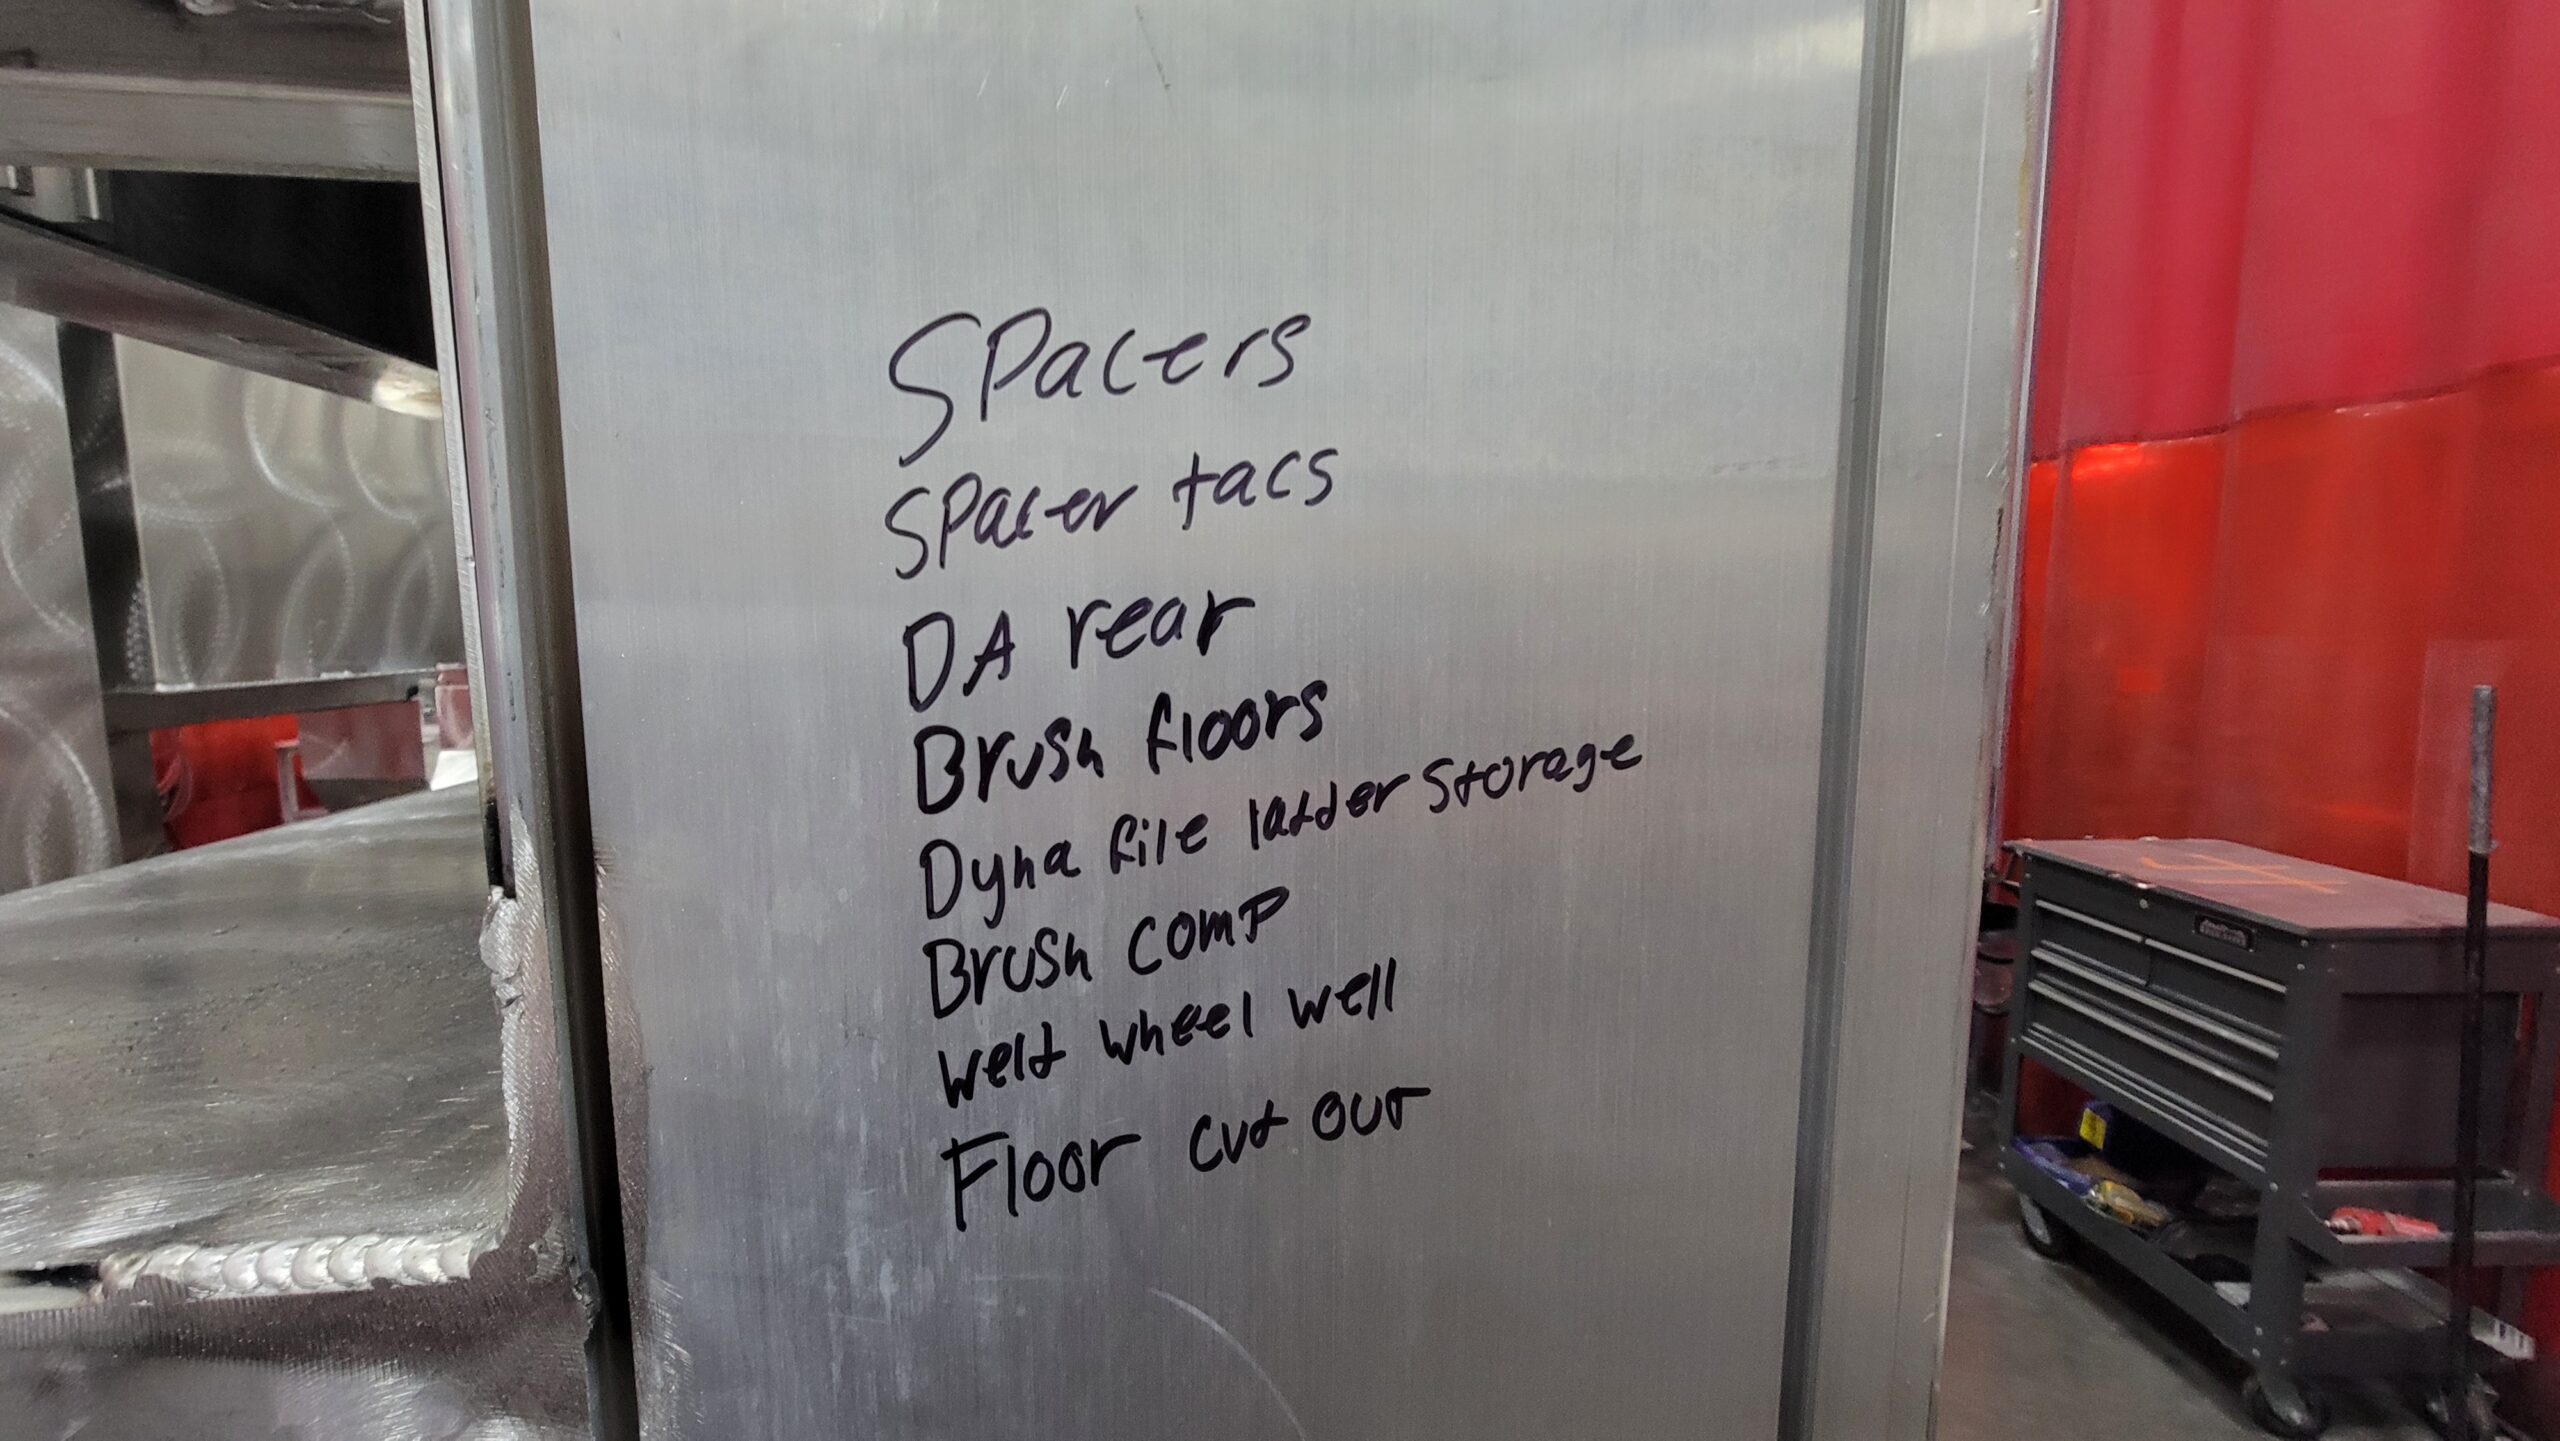 SPacers
SPacer tacs
DA rear
Brush floors
Dyna file ladder Storage
Brush comp
Weld wheel well
Floor cut out